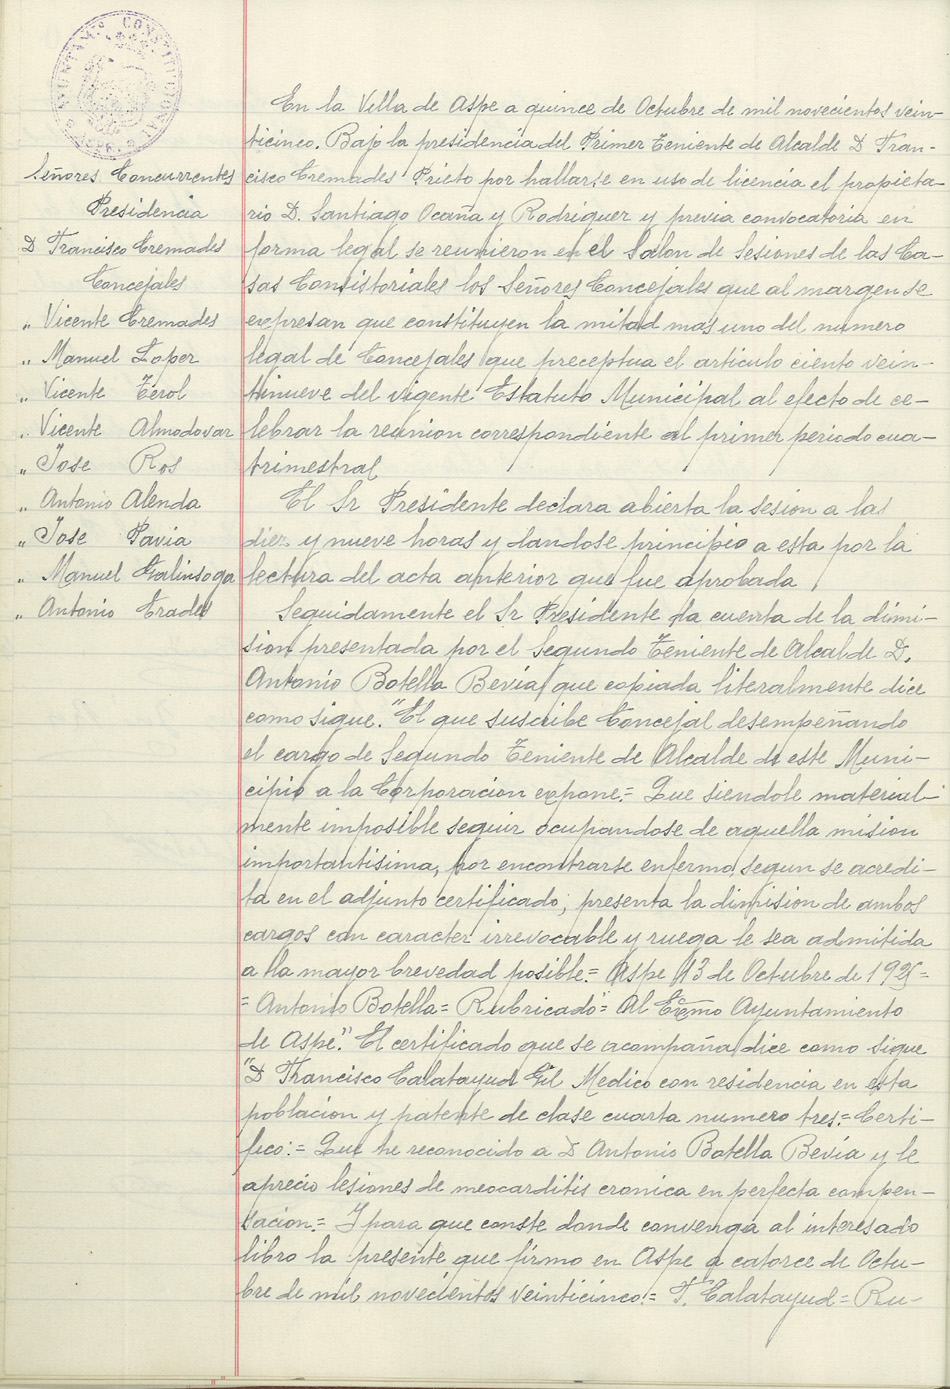 AYUNTAMº CONSTITUCIONAL
ASPE
Señores Concurrentes
Presidencia
D Francisco Cremades
Concejales
" Vicente Cremades
" Manuel Lopez
" Vicente Terol
" Vicente Almodovar
" Jose Ros
" Antonio Alenda
" Jose Pavia
" Manuel Galinsoga
" Antonio Prades
En la Villa de Aspe a quince de Octubre de mil novecientos vein-
ticinco. Bajo la presidencia del Primer Teniente de Alcalde D Fran-
cisco Cremades Prieto por hallarse en uso de licencia el propieta-
rio D. Santiago Ocaña y Rodriguez y previa convocatoria en
forma legal se reunieron en el Salon de sesiones de las Ca-
sas Consistoriales los Señores Concejales que al margen se
expresan que constituyen la mitad mas uno del numero
legal de Concejales que preceptua el articulo ciento vein-
tinueve del vigente Estatuto Municipal al efecto de ce-
lebrar la reunion correspondiente al primer periodo cua-
trimestral
El Sr Presidente declara abierta la sesion a las
diez y nueve horas y dandose principio a esta por la
lectura del acta anterior que fue aprobada
Seguidamente el Sr Presidente da cuenta de la dimi-
sion presentada por el Segundo Teniente de Alcalde D.
Antonio Botella Bevia que copiada literalmente dice
como sigue. "El que suscribe Concejal desempeñando
el cargo de Segundo Teniente de Alcalde de este Muni-
cipio a la Corporacion expone:= Que siendole material-
mente imposible seguir ocupandose de aquella mision
importantisima, por encontrarse enfermo, segun se acredi-
ta en el adjunto certificado; presenta la dimision de ambos
cargos con caracter irrevocable y ruega le sea admitida
a la mayor brevedad posible= Aspe 13 de Octubre de 1925=
= Antonio Botella= Rubricado"= Al Ecmo Ayuntamiento
de Aspe". El certificado que se acompaña dice como sigue
"D Francisco Calatayud Gil Medico con residencia en esta
poblacion y patente de clase cuarta numero tres:= Certi-
fico:= Que he reconocido a D Antonio Botella Bevia y le
aprecio lesiones de meocarditis cronica en perfecta compen-
sacion.= Y para que conste donde convenga al interesado
libro la presente que firmo en Aspe a catorce de Octu-
bre de mil novecientos veinticinco:= F. Calatayud= Ru-